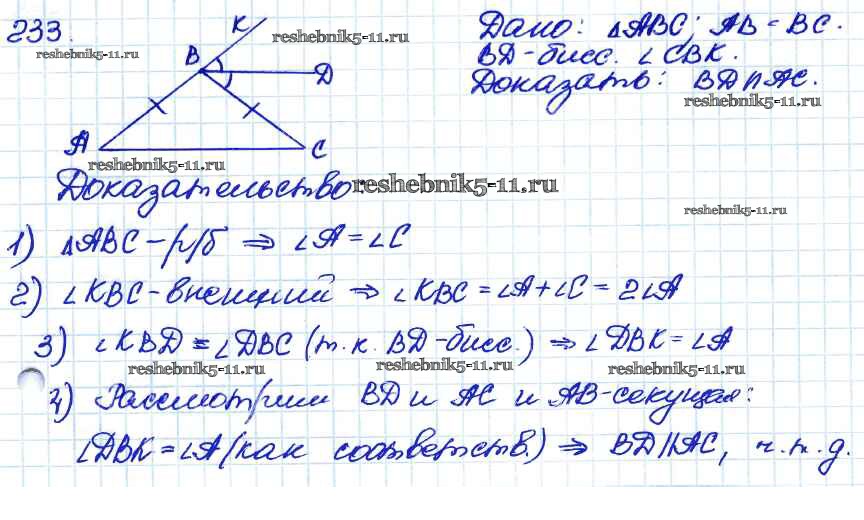 233.
K
reshebnik5-11.ru
Дано: △ABC; AB = BC.
reshebnik5-11.ru
B
D
BD - бисс. ∠CBK.
Доказать: BD ∥ AC.
reshebnik5-11.ru
A
C
reshebnik5-11.ru
Доказательство:
reshebnik5-11.ru
reshebnik5-11.ru
1) △ABC – р/б ⇒ ∠A = ∠C
2) ∠KBC - внешний ⇒ ∠KBC = ∠A + ∠C = 2∠A
3) ∠KBD = ∠DBC (т. к. BD - бисс.) ⇒ ∠DBK = ∠A
reshebnik5-11.ru
reshebnik5-11.ru
reshebnik5-11.ru
4) Рассмотрим BD и AC и AB - секущая:
∠DBK = ∠A (как соответств.) ⇒ BD ∥ AC, ч.т.д.